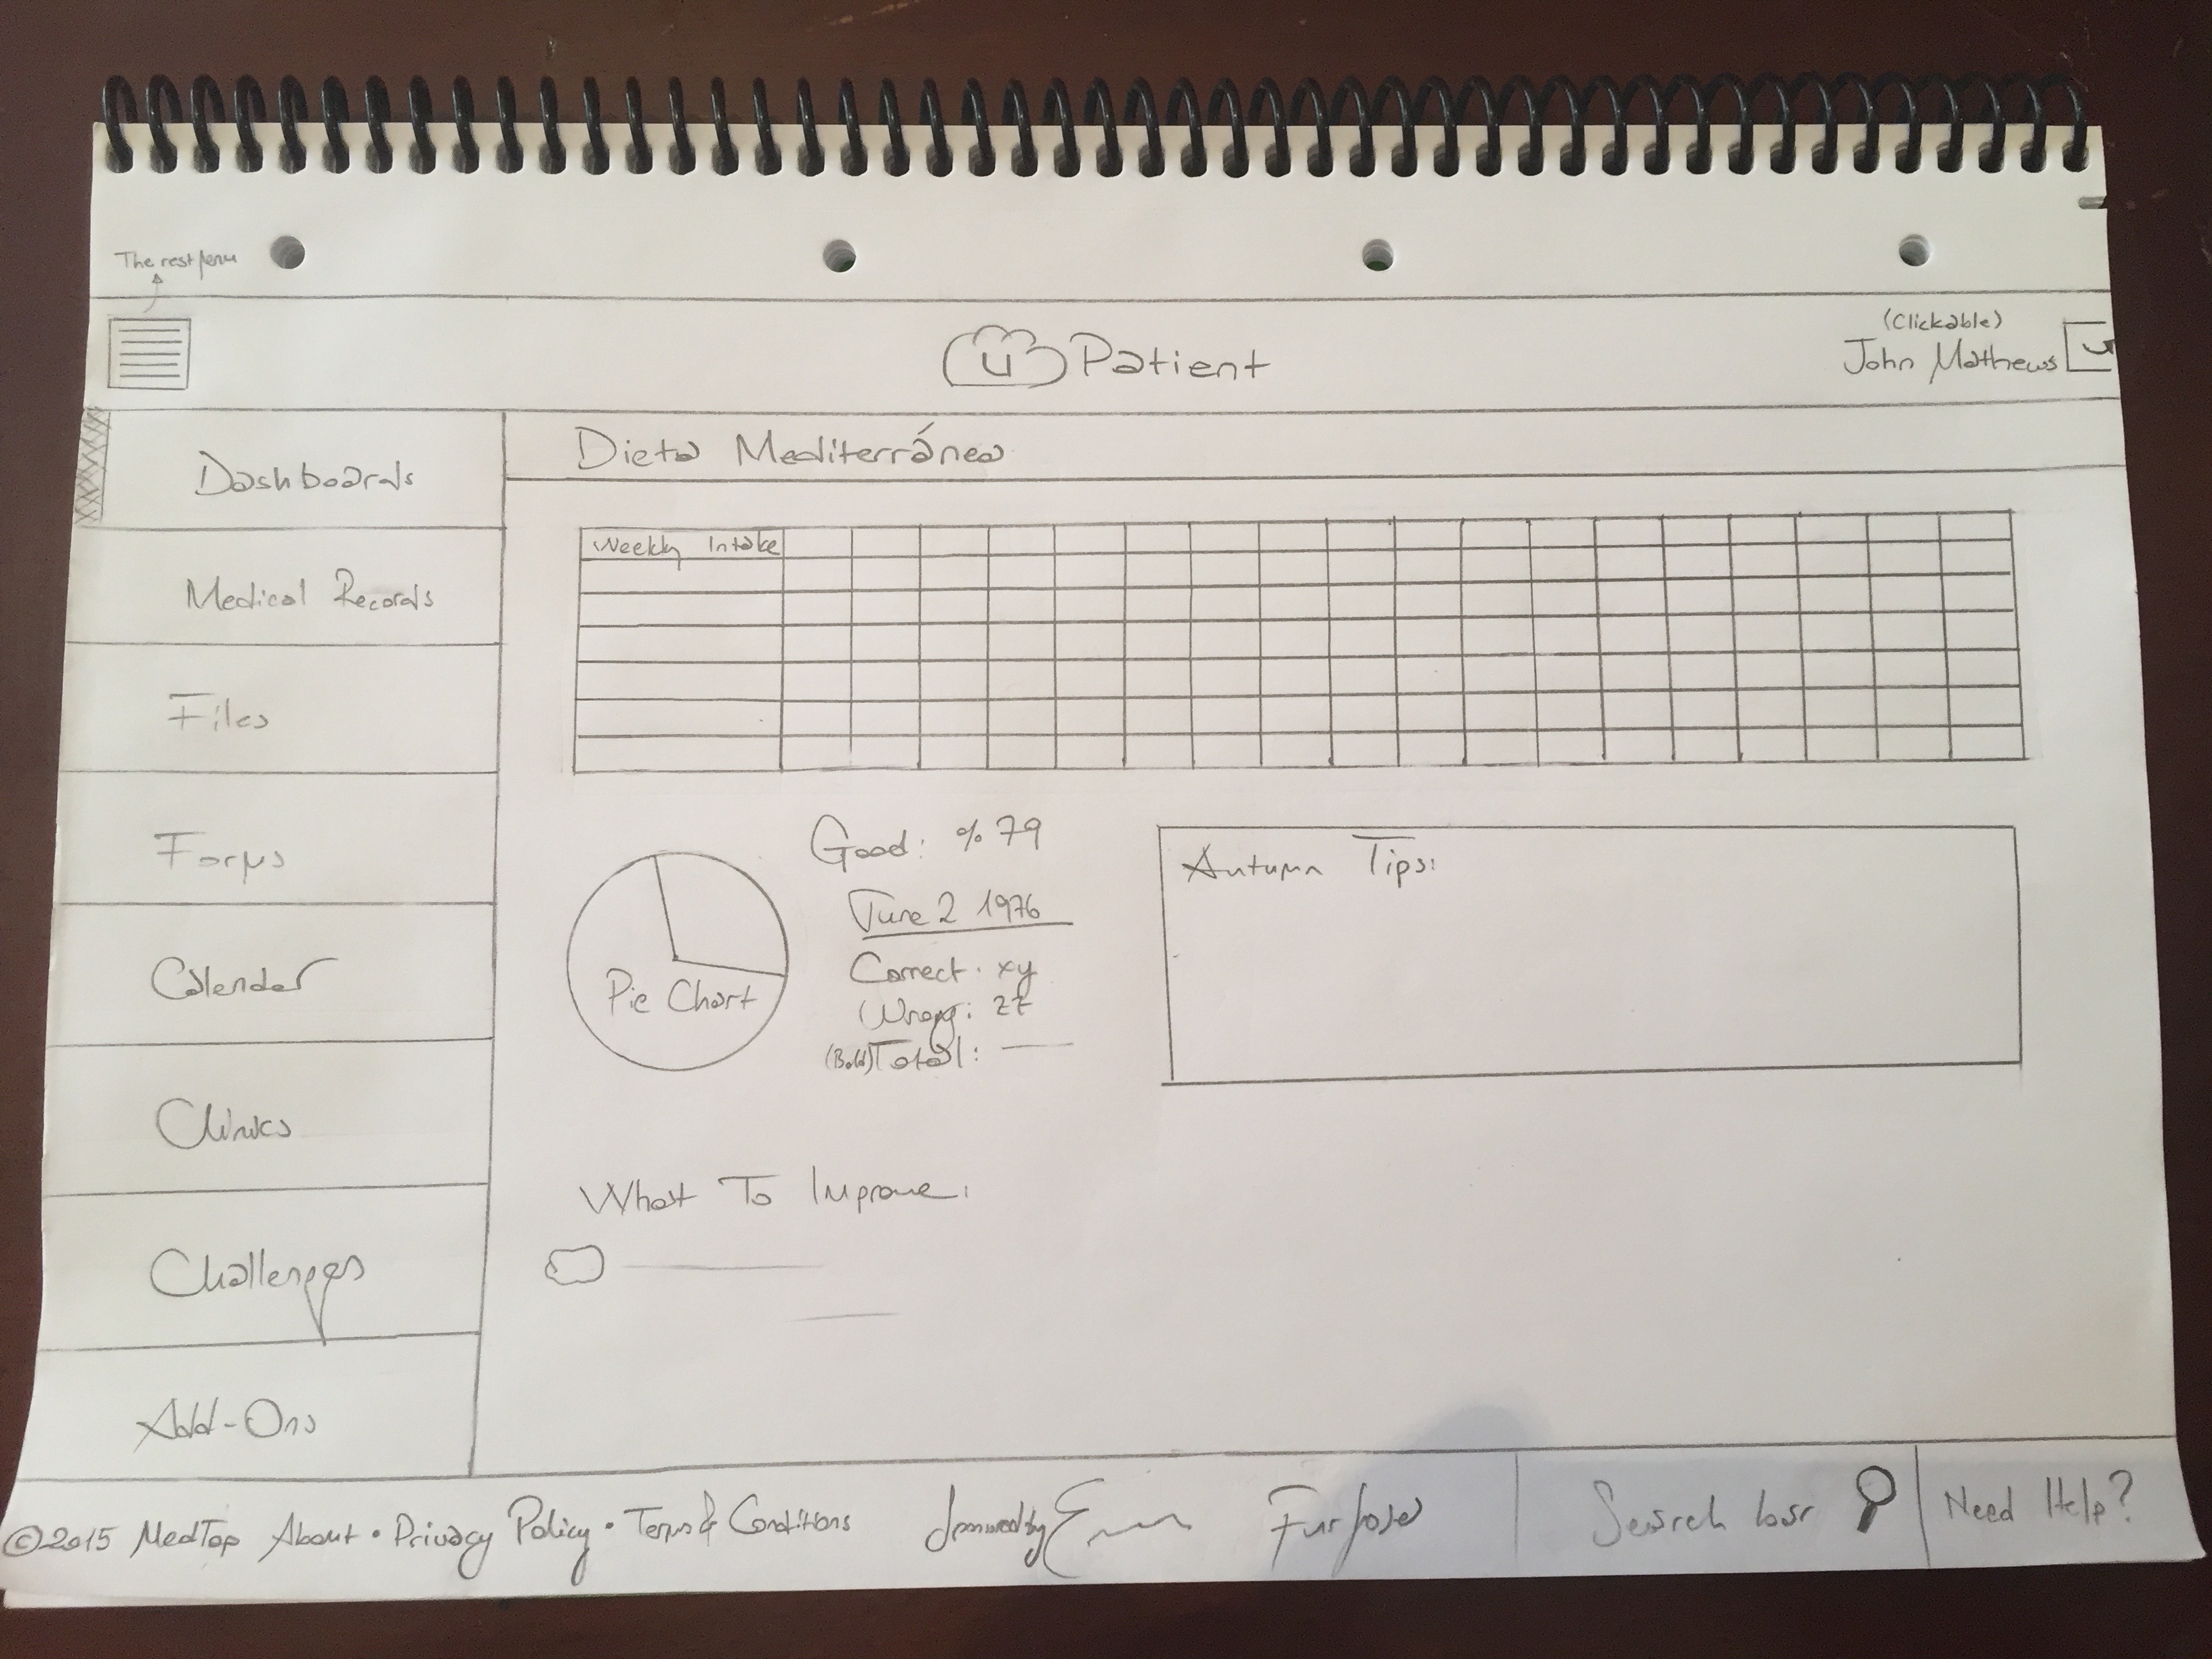 The rest Menu
U Patient
(Clickable)
John Mathews
Dashboards
Medical Records
Files
Forms
Calendar
Clinics
Challenges
Add-Ons
Dieta Mediterránea
Weekly Intake
Pie Chart
Good: % 79
June 2 1976
Correct: xy
Wrong: zz
(Bold) Total:
Autumn Tips:
What To Improve:
©2015 MedTop About • Privacy Policy • Terms & Conditions
Search bar
Need Help?